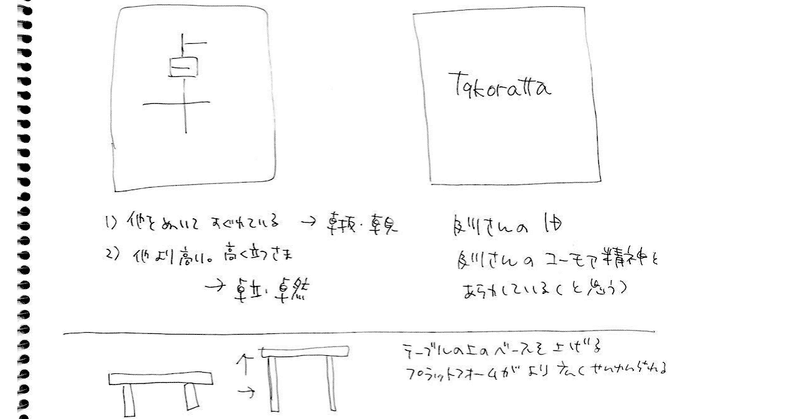 卓
Takoratta
1) 他をぬいてすぐれている → 卓抜・卓見
2) 他より高い。高く立つさま
→ 卓立・卓然
良川さんのID
良川さんのユーモア精神を
あらわしている(と思う)
テーブルの上のベースを上げる
プラットフォームがより